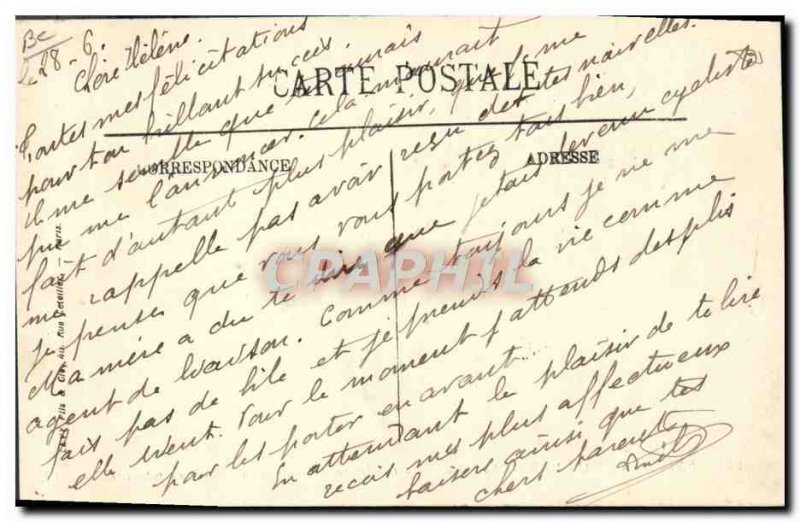 le 28-6.
Chère Hélène.
Toutes mes félicitations
pour ton brillant succès.
Il me semble que tu aurais
pu me l'annoncer. Cela m'aurait
fait d'autant plus plaisir, que je ne
me rappelle pas avoir reçu de tes nouvelles.
Je pense que vous vous portez tous bien,
Ma mère a du te dire que j'étais devenu cycliste
agent de liaison. Comme toujours je ne me
fais pas de bile et je prends la vie comme
elle vient. Pour le moment j'attends des plis
pour les porter en avant.
En attendant le plaisir de te lire
reçois mes plus affectueux
baisers ainsi que tes
chers parents
CARTE POSTALE
CORRESPONDANCE
ADRESSE
CPAPHIL